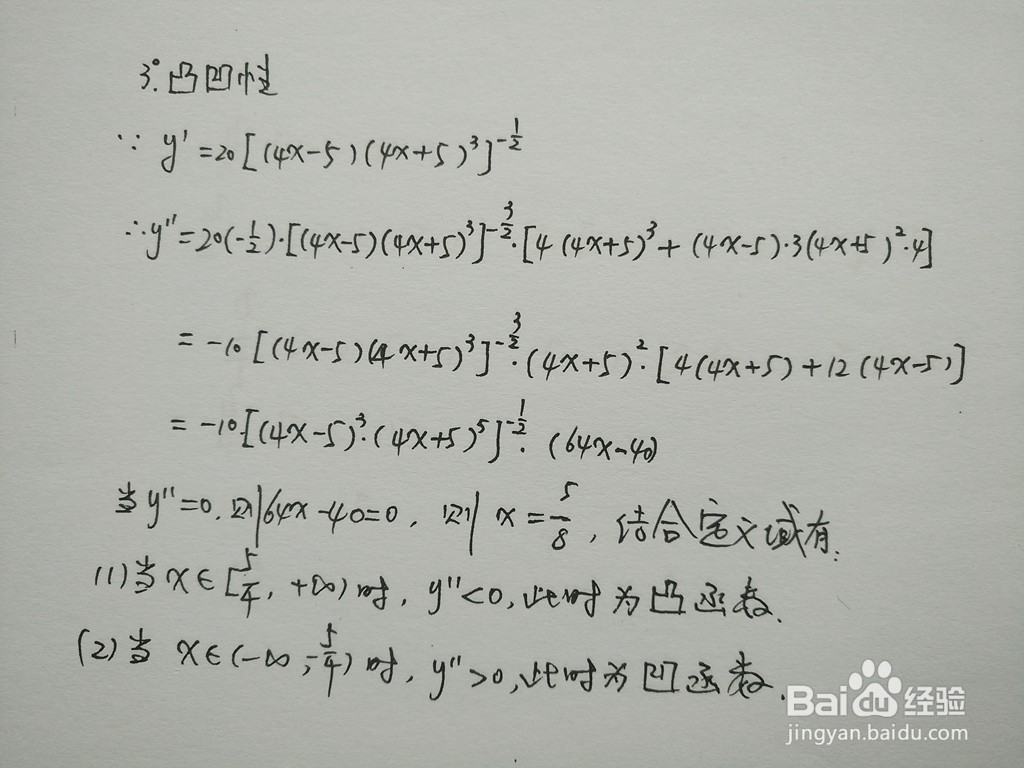 3°.凸凹性
∵ y'=20[(4x-5)(4x+5)³]^{-1/2}
∴y''=20(-1/2)·[(4x-5)(4x+5)³]^{-3/2}·[4(4x+5)³+(4x-5)·3(4x+5)²·4]
=-10[(4x-5)(4x+5)³]^{-3/2}·(4x+5)²·[4(4x+5)+12(4x-5)]
=-10[(4x-5)³·(4x+5)⁵]^{-1/2}·(64x-40)
当y''=0,则64x-40=0,则x=5/8,结合定义域有:
(1)当x∈[5/4,+∞)时,y''<0,此时为凸函数.
(2)当x∈(-∞,-5/4)时,y''>0,此时为凹函数.
Baidu经验
jingyan.baidu.com